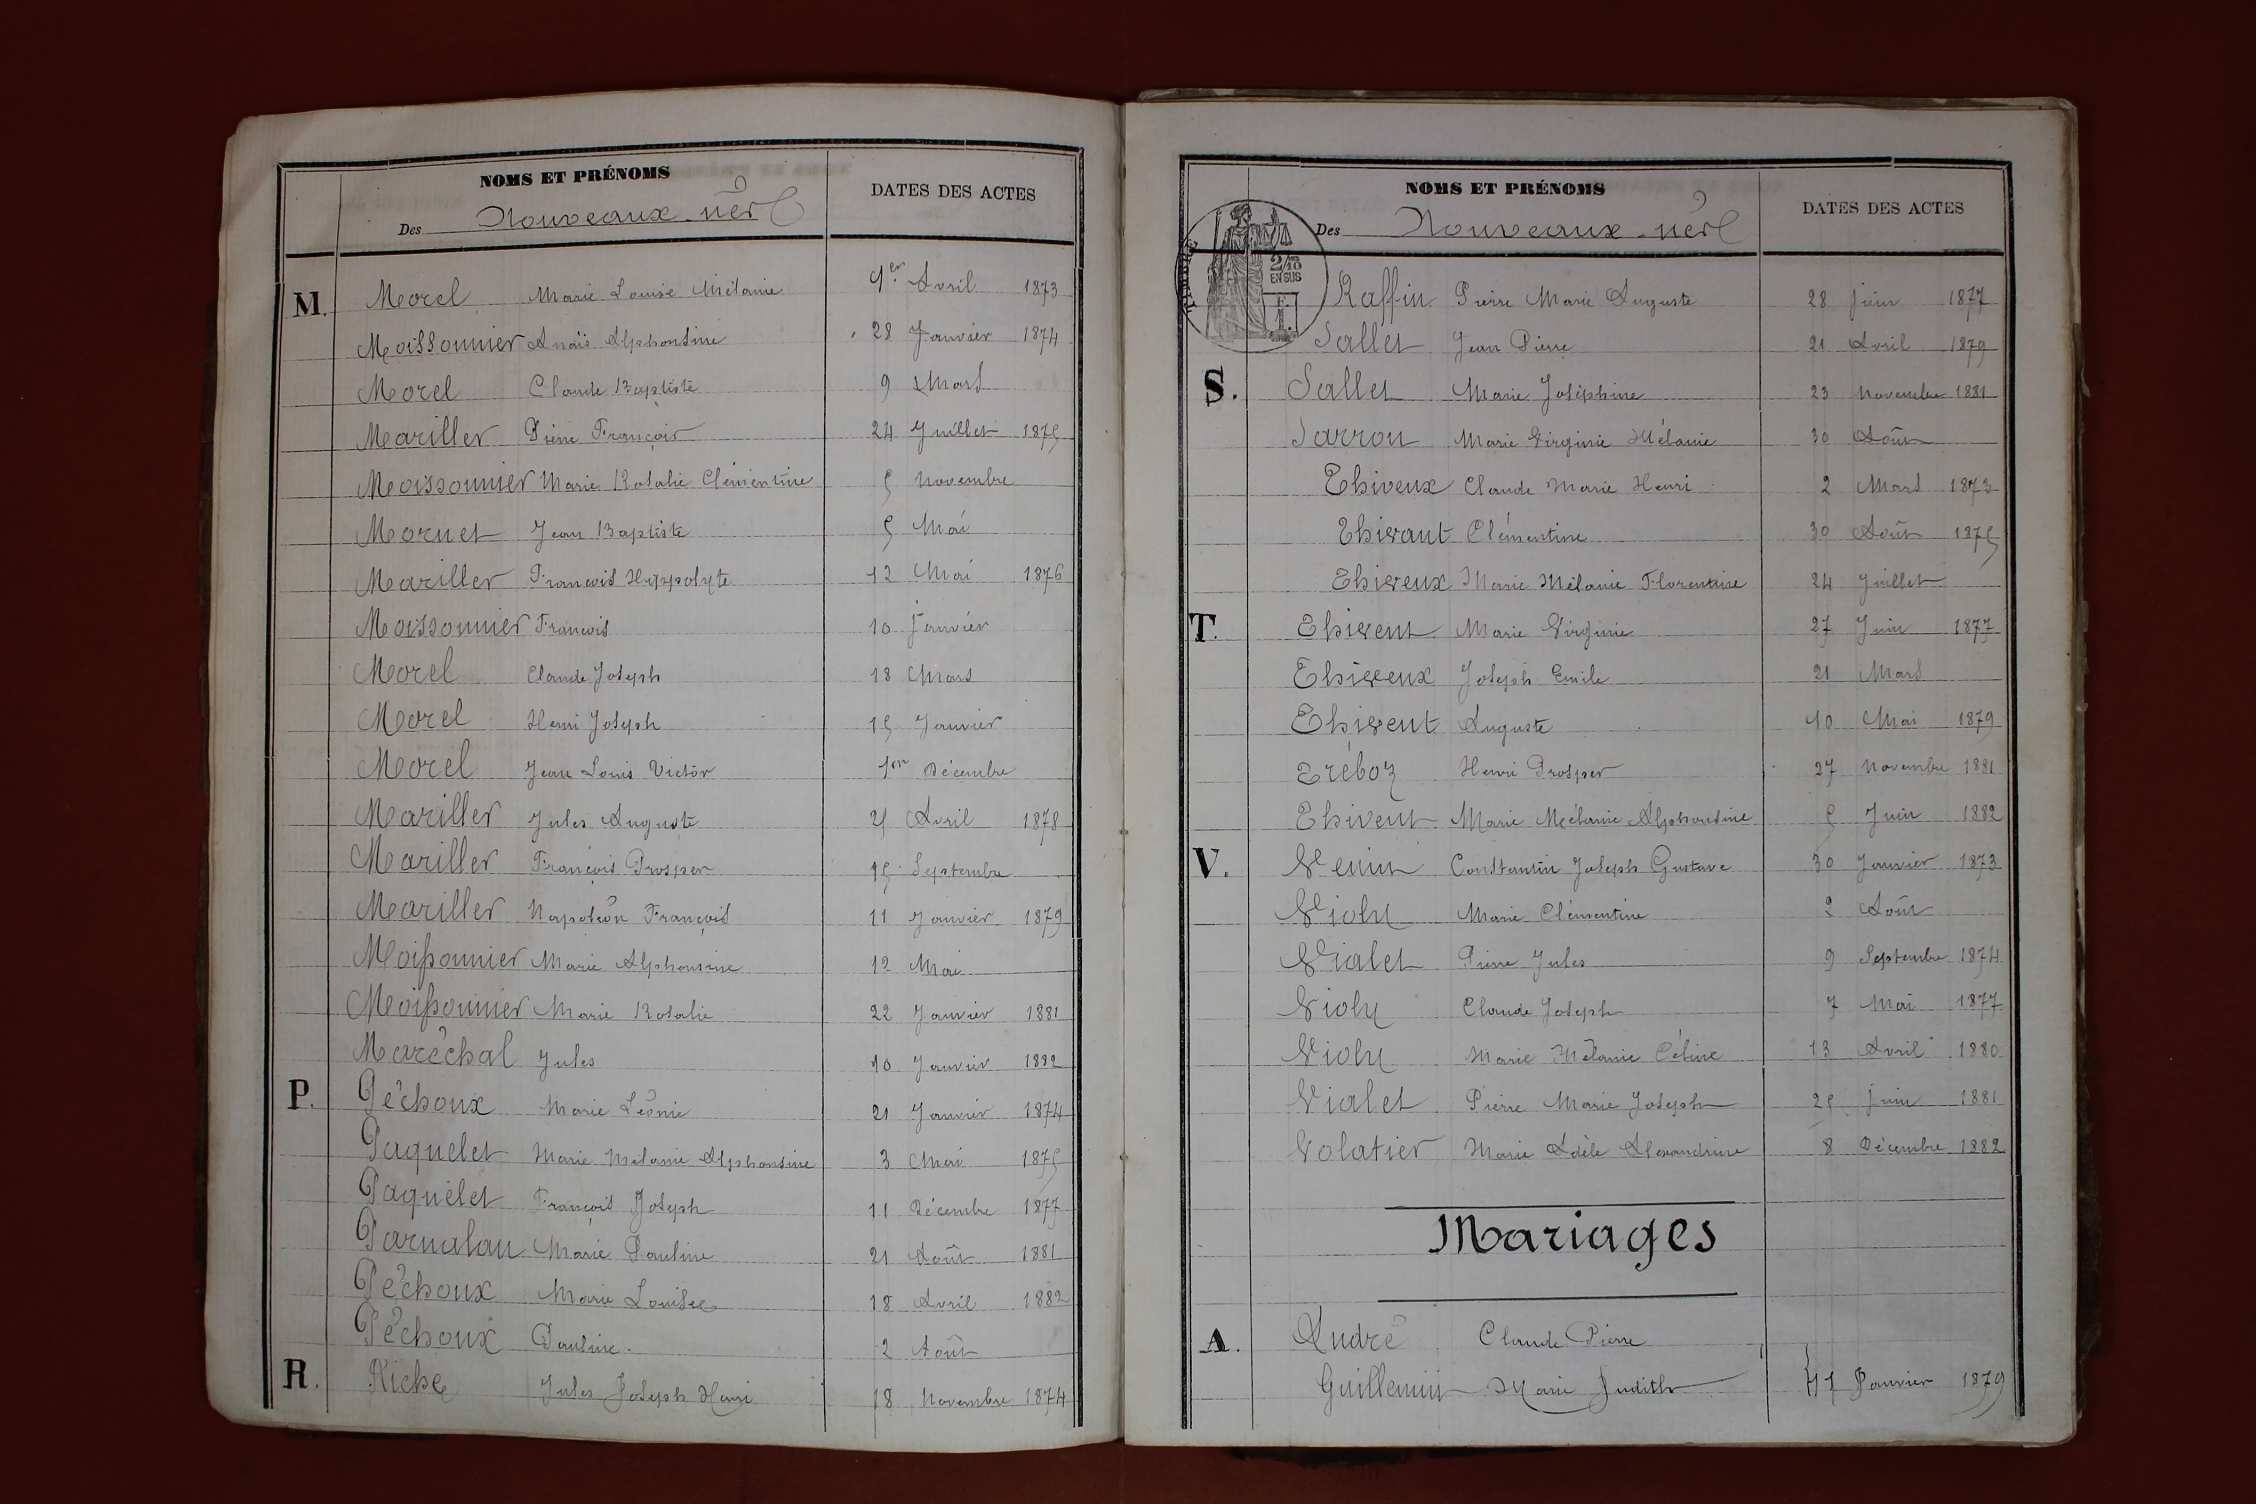 NOMS ET PRÉNOMS
Des Nouveaux-nés
DATES DES ACTES
M. Morel Marie Louise Mélanie 1er Avril 1873
Moissonnier Anaïs Alphonsine 28 Janvier 1874
Morel Claude Baptiste 9 Mars
Mariller Pierre François 24 Juillet 1875
Moissonnier Marie Rosalie Clémentine 5 Novembre
Mornet Jean Baptiste 5 Mai
Mariller François Hyppolyte 12 Mai 1876
Moissonnier François 10 Janvier
Morel Claude Joseph 18 Mars
Morel Henri Joseph 15 Janvier
Morel Jean Louis Victor 1er Décembre
Mariller Jules Auguste Avril 1878
Mariller François Prosper 15 Septembre
Mariller Napoléon François 11 Janvier 1879
Moissonnier Marie Alphonsine 12 Mai
Moissonnier Marie Rosalie 22 Janvier 1881
Maréchal Jules 10 Janvier 1882
P. Péchoux Marie Léonie 21 Janvier 1874
Paquelet Marie Mélanie Alphonsine 3 Mai 1875
Paquelet François Joseph 11 Décembre 1877
Parnalau Marie Pauline 21 Août 1881
Péchoux Marie Louise 18 Avril 1882
Péchoux Pauline. 2 Août
R. Riche Jules Joseph Henri 18 Novembre 1874
NOMS ET PRÉNOMS
Des Nouveaux-nés
DATES DES ACTES
2/10
EN SUS
F.
1.
Raffin Pierre Marie Auguste 28 juin 1877
Sallet Jean Pierre 21 Avril 1879
S. Sallet Marie Joséphine 23 Novembre 1881
Sarron Marie Virginie Mélanie 30 Août
Thiveux Claude Marie Henri 2 Mars 1873
Thivant Clémentine 30 Août 1875
Thiveux Marie Mélanie Florentine 24 Juillet
T. Thivent Marie Virginie 27 Juin 1877
Thiveux Joseph Emile 21 Mars
Thivent Auguste 10 Mai 1879
Tréboz Henri Prosper 27 Novembre 1881
Thivent Marie Mélanie Alphonsine 5 Juin 1882
V. Venin Constantin Joseph Gustave 30 Janvier 1873
Violy Marie Clémentine 2 Août
Vialet Pierre Jules 9 Septembre 1874
Violy Claude Joseph 7 Mai 1877
Violy Marie Mélanie Céline 13 Avril 1880
Vialet Pierre Marie Joseph 25 juin 1881
Volatier Marie Adèle Alexandrine 8 Décembre 1882
Mariages
A. André Claude Pierre
Guillemin Marie Judith Janvier 1879